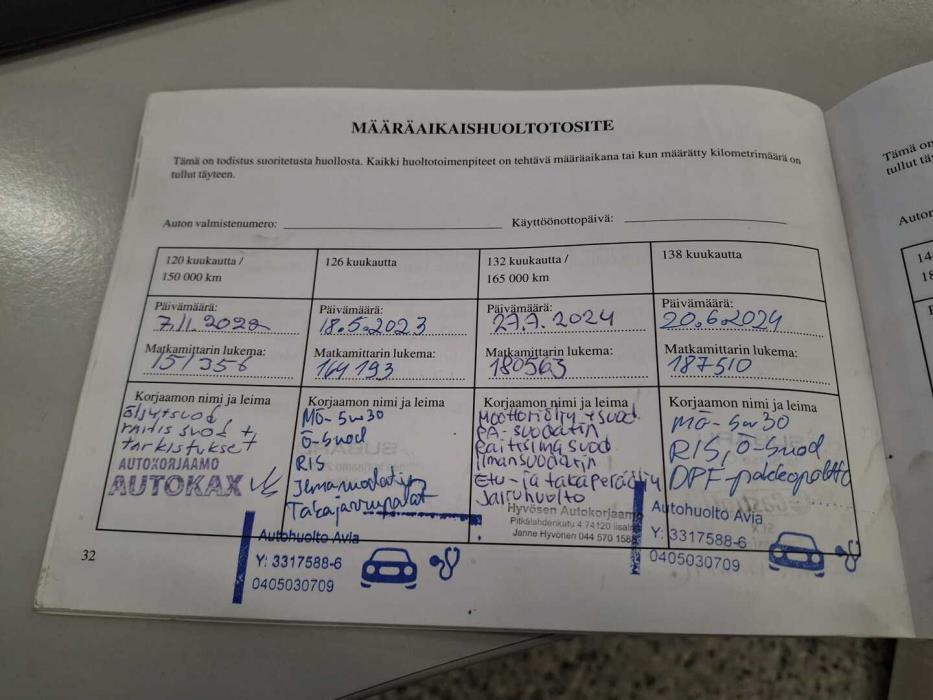 MÄÄRÄAIKAISHUOLTOTOSITE
Tämä on todistus suoritetusta huollosta. Kaikki huoltotoimenpiteet on tehtävä määräaikana tai kun määrätty kilometrimäärä on
tullut täyteen.
Auton valmistenumero:
Käyttöönottopäivä:
120 kuukautta /
150 000 km
Päivämäärä:
Matkamittarin lukema:
151356
Korjaamon nimi ja leima
öljy+suod,
raitis suod +,
tarkistukset
AUTOKORJAAMO
AUTOKAX
126 kuukautta
Päivämäärä:
18.5.2023
Matkamittarin lukema:
164193
Korjaamon nimi ja leima
Mö- 5w30
Ö-suod
RIS
Takajarrupalat
Autohuolto Avia
Y: 3317588-6
0405030709
132 kuukautta /
165 000 km
Päivämäärä:
Matkamittarin lukema:
180563
Korjaamon nimi ja leima
Moottoriöljy + suod.
PA-suodatin
Raitisilma suod
ilmansuodatin
Etu- ja takaperäöljy
Jarruhuolto
Hyvösen Autokorjaamo
Pitkälahdenkatu 4 74120 Iisalmi
Janne Hyvönen 044 570 1588
138 kuukautta
Päivämäärä:
20.6.2024
Matkamittarin lukema:
187510
Korjaamon nimi ja leima
Mö- 5w30
RIS, Ö-suod
DPF-pakkopoltto
Autohuolto Avia
Y: 3317588-6
0405030709
32
Tämä on
tullut tä
Auton
14
18